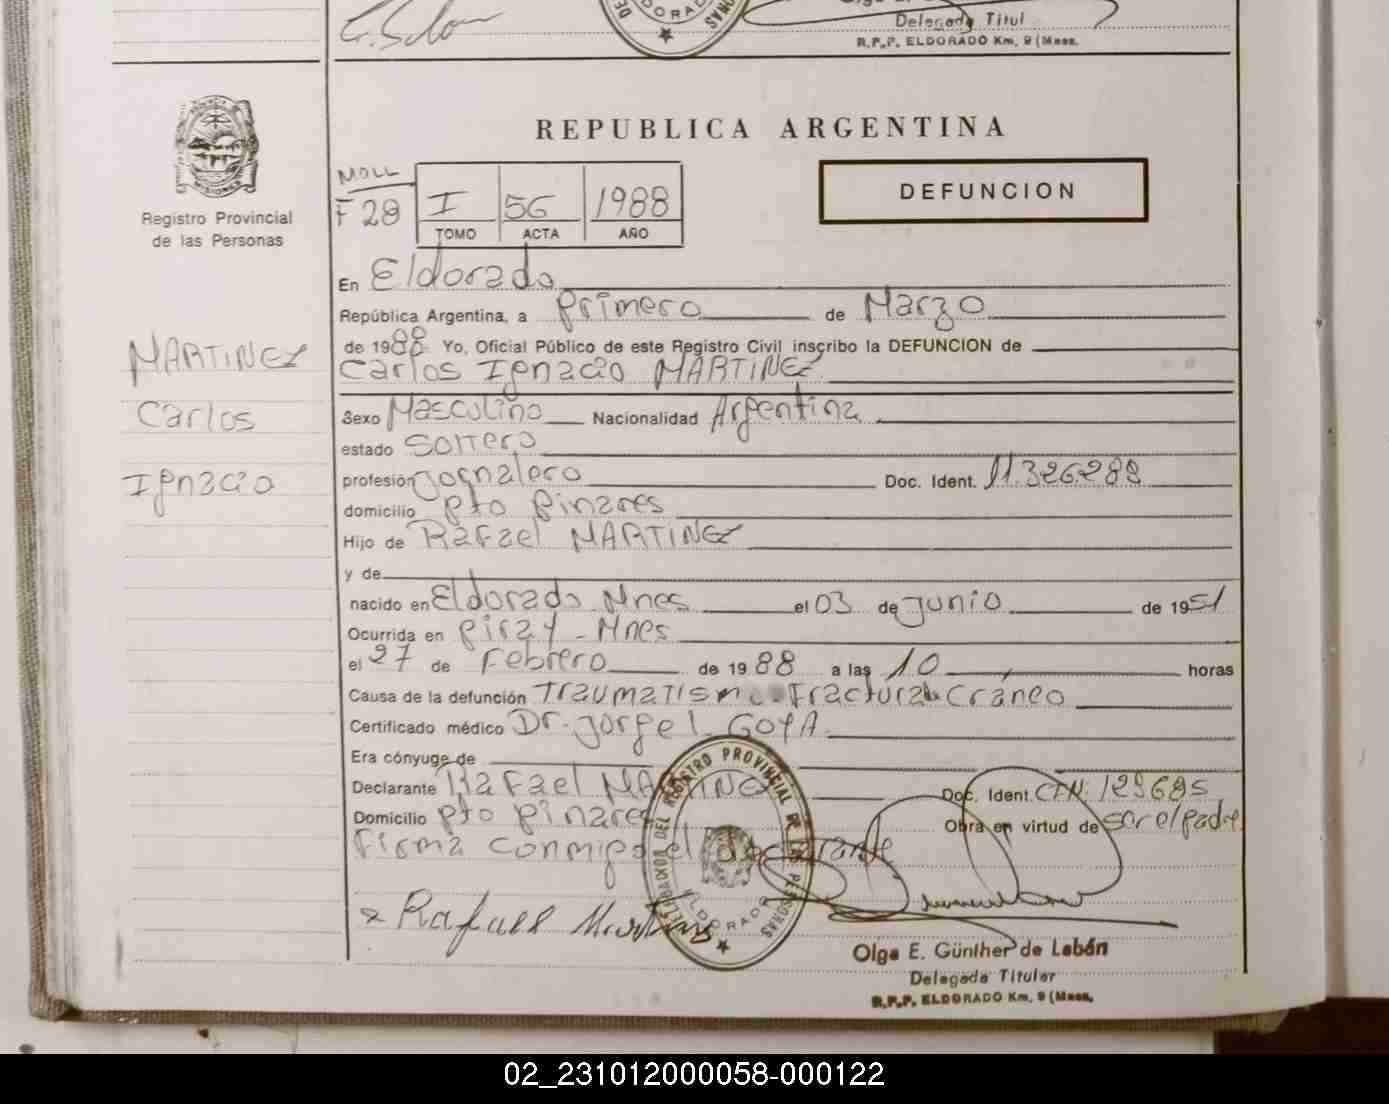 G. Sch
Delegada Titul
R.P.P. ELDORADO Km. 9 (Mnes.
REPUBLICA ARGENTINA
MOLL
F 28 I 56 1988
TOMO ACTA AÑO
DEFUNCION
Registro Provincial
de las Personas
En Eldorado
República Argentina, a Primero de Marzo
de 1988 Yo, Oficial Público de este Registro Civil inscribo la DEFUNCION de
Carlos Ignacio MARTINEZ
MARTINEZ
Carlos
Ignacio
Sexo Masculino Nacionalidad Argentina
estado Soltero
profesión Jornalero Doc. Ident. 11.326.289
domicilio Pto Pinares
Hijo de Rafael MARTINEZ
y de
nacido en Eldorado Mnes el 03 de Junio de 1951
Ocurrida en Piray - Mnes
el 27 de Febrero de 1988 a las 10 horas
Causa de la defunción Traumatismo Fractura Craneo
Certificado médico Dr. Jorge L. GOYA
Era cónyuge de
Declarante Rafael MARTINEZ Doc. Ident. CIN: 129685
Domicilio Pto Pinares Obra en virtud de ser el padre
Firma conmigo el declarante
x Rafael Martinez
DELEGACION DEL REGISTRO PROVINCIAL DE LAS PERSONAS
ELDORADO
Olga E. Günther de Labán
Delegada Titular
R.P.P. ELDORADO Km. 9 (Mnes.
02_231012000058-000122